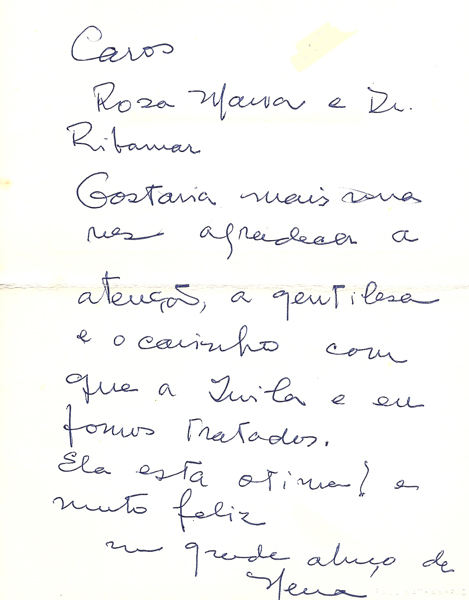 Caros
Rosa Maria e Dr.
Ribamar
Gostaria mais uma
vez agradecer a
atenção, a gentilesa
e o carinho com
que a e eu
fomos tratados.
Ela esta otima! e
muito feliz
um grande abraço de